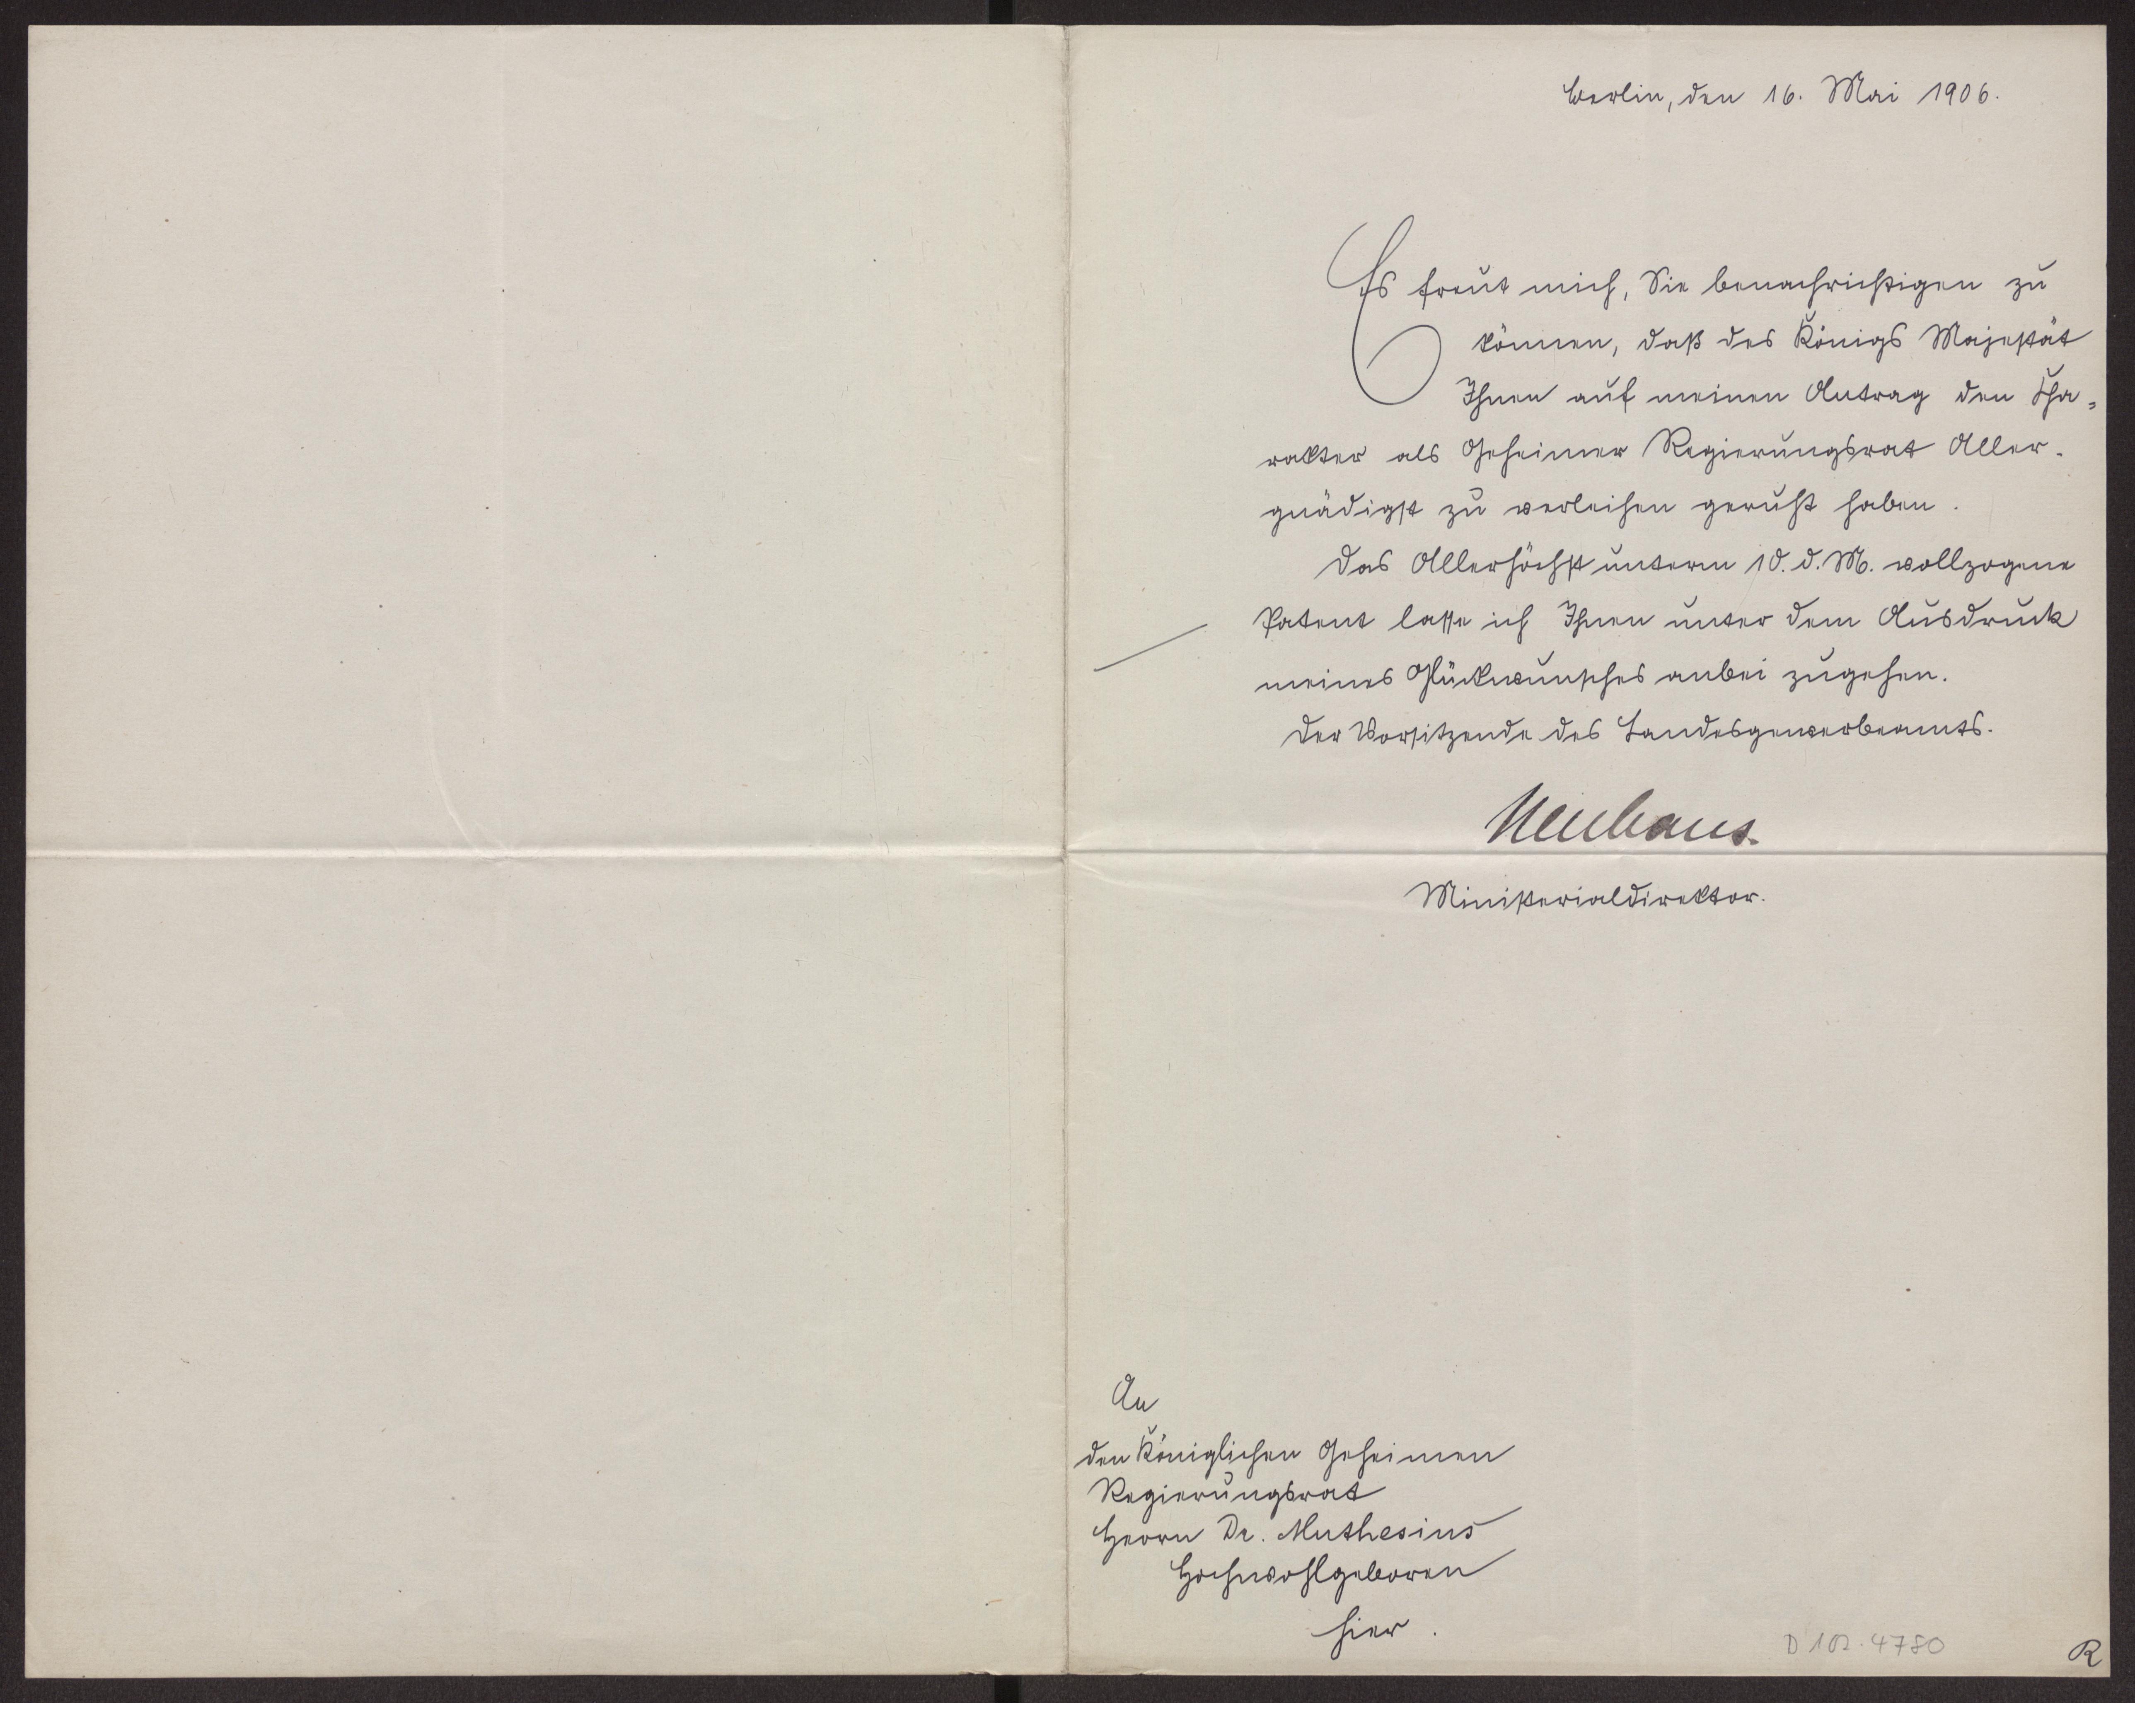 Berlin, den 16. Mai 1906.
Es freut mich, Sie benachrichtigen zu
können, daß des Königs Majestät
Ihnen auf meinen Antrag den Cha-
rakter als Geheimer Regierungsrat Aller-
gnädigst zu verleihen geruht haben.
Das Allerhöchst unterm 10. d. M. vollzogene
Patent lasse ich Ihnen unter dem Ausdruck
meines Glückwunsches anbei zugehen.
Der Vorsitzende des Landesgewerbeamts.
Neuhaus.
Ministerialdirektor.
An
den Königlichen Geheimen
Regierungsrat
Herrn Dr. Muthesius
Hochwohlgeboren
hier.
D 102-4780
R